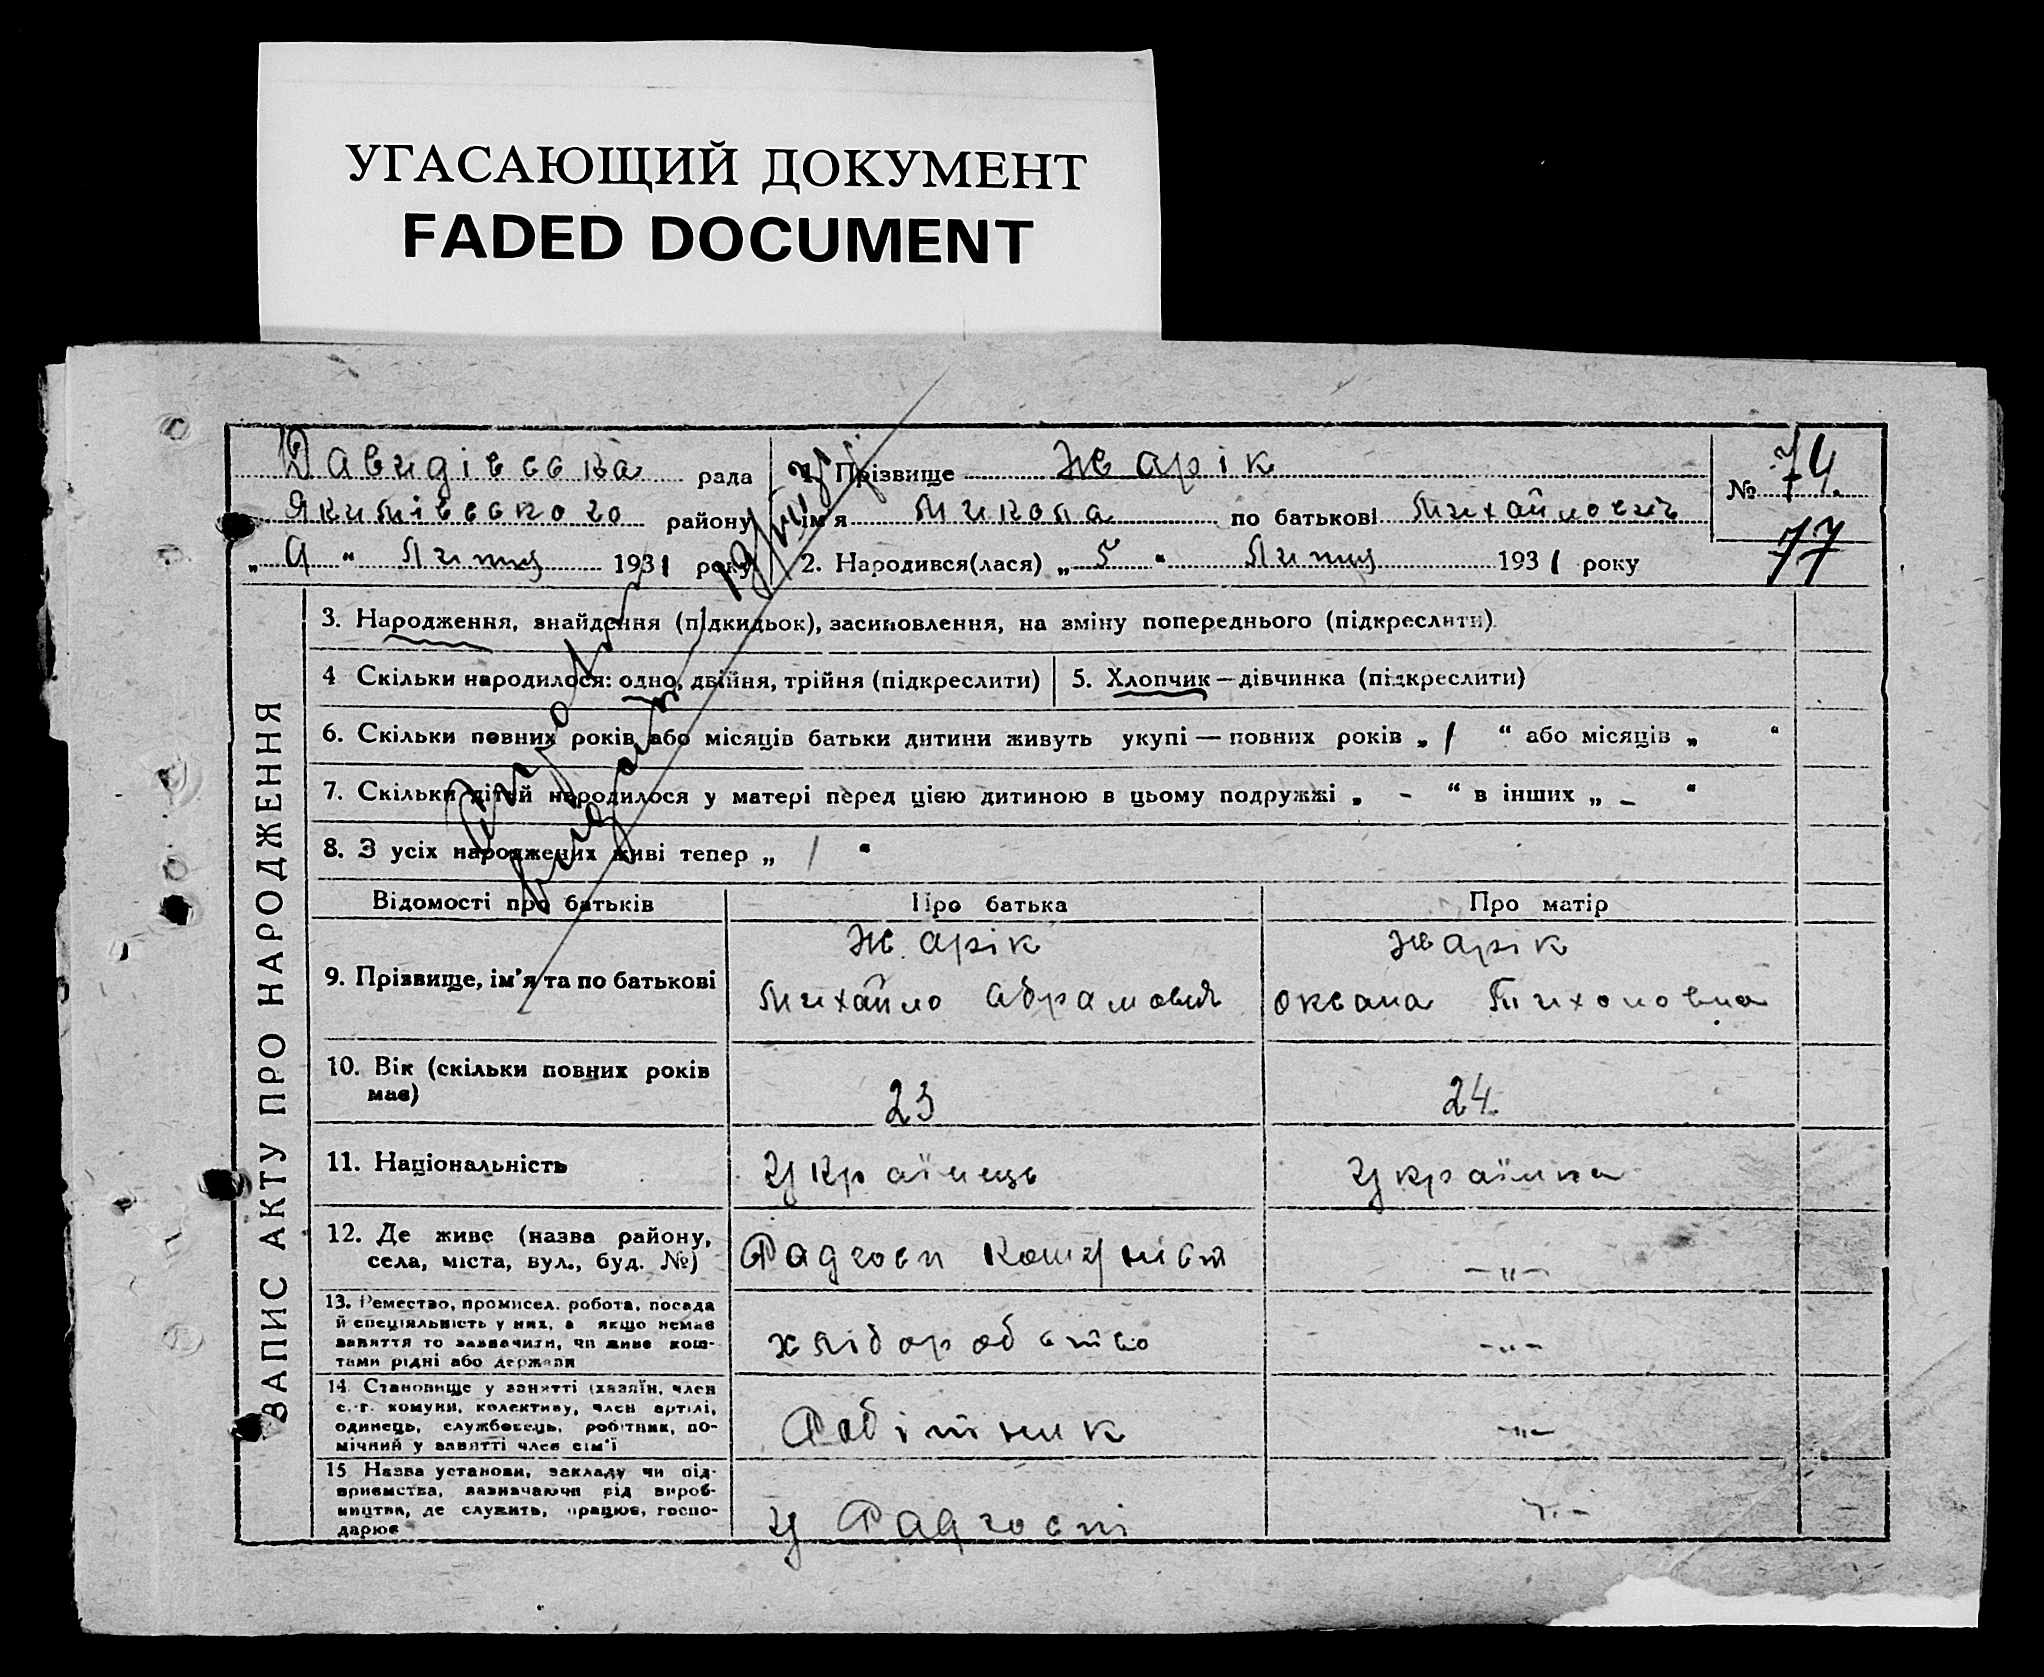 УГАСАЮЩИЙ ДОКУМЕНТ
FADED DOCUMENT
Давидівська рада
Якимівського району
„ 9 “ Липця 1931 року
1. Прізвище Жарік
ім'я Микола по батькові Михайлович
2. Народився(лася) „ 5 “ Липця 1931 року
№ 74.
77
ЗАПИС АКТУ ПРО НАРОДЖЕННЯ
3. Народження, знайдення (підкидьок), засиновлення, на зміну попереднього (підкреслити)
4 Скільки народилося: одно, двійня, трійня (підкреслити)
5. Хлопчик — дівчинка (підкреслити)
6. Скільки повних років або місяців батьки дитини живуть укупі — повних років „ 1 “ або місяців „ “
7. Скільки дітей народилося у матері перед цією дитиною в цьому подружжі „ - “ в інших „ - “
8. З усіх народжених живі тепер „ 1 “
Відомості про батьків
Про батька
Про матір
9. Прізвище, ім'я та по батькові
Жарік
Михайло Абрамович
Жарік
Оксана Тихоновна
10. Вік (скільки повних років має)
23
24.
11. Національність
Українець
Українка
12. Де живе (назва району, села, міста, вул., буд. №)
Радгосп Комуніст
-„-
13. Ремество, промисел, робота, посада й спеціяльність у них, а якщо немає заняття то зазначити, чи живе коштами рідні або держави
хліборобство
-„-
14. Становище у занятті (хазяїн, член с.-г. комуни, колективу, член артілі, одинець, службовець, робітник, помічний у занятті член сім'ї
Робітник
-„-
15 Назва установи, закладу чи підприємства, зазначаючи рід виробництва, де служить, працює, господарює
у Радгоспі
-„-